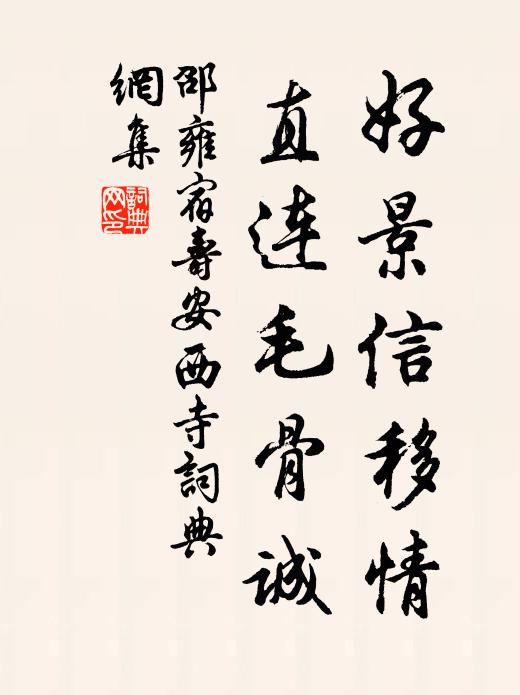 好景信移情
直连毛骨誠
邵雍宿壽安西寺詞典
網集
詞典
网印